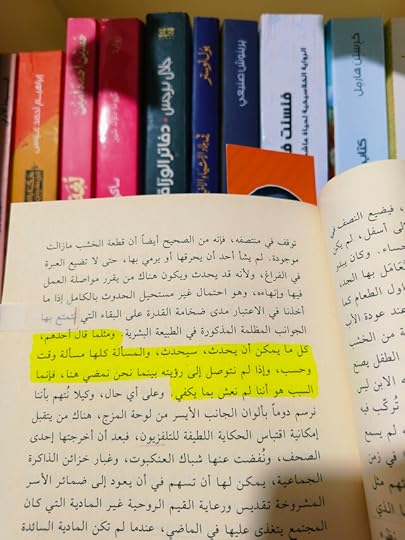 إبراهيم أحمد عيسى
جلال برجس • دفاتر الوراق
بول أوستر
برينوش صنيعي
فنسنت ف
الرواية الكلاسيكية لحياة عاش
كرستن هارمل
كتاب
توقف في منتصفه، فإنه من الصحيح أيضاً أن قطعة الخشب مازالت
موجودة. لم يشأ أحد أن يحرقها أو يرمي بها، حتى لا تضيع العبرة
في الفراغ، ولأنه قد يحدث ويكون هناك من يقرر مواصلة العمل
فيها وإنهاءه، وهو احتمال غير مستحيل الحدوث بالكامل إذا ما
أخذنا في الاعتبار مدى ضخامة القدرة على البقاء التي تتمتع بها
الجوانب المظلمة المذكورة في الطبيعة البشرية. ومثلما قال أحدهم،
كل ما يمكن أن يحدث، سيحدث، والمسألة كلها مسألة وقت
وحسب، وإذا لم نتوصل إلى رؤيته بينما نحن نمضي هنا، فإنما
السبب هو أننا لم نعش بما يكفي. وعلى أي حال، وكيلا نُتهم بأننا
نرسم دوماً بألوان الجانب الأيسر من لوحة المزج، هناك من يتقبل
إمكانية اقتباس الحكاية اللطيفة للتلفزيون، فبعد أن أخرجتها إحدى
الصحف، ونُفضت عنها شباك العنكبوت، وغبار خزائن الذاكرة
الجماعية، يمكن لها أن تسهم في أن يعود إلى ضمائر الأسر
المشروخة تقديس ورعاية القيم الروحية غير المادية التي كان
المجتمع يتغذى عليها في الماضي، عندما لم تكن المادية السائدة
، فيضيع النصف في
إلى أسفل، لم يكن
حساء. وكان يبدو
اول الطعام كما
عند عودة الأب
من الخشب
الطفل يصنع
الابن ليس
تُركّب فيه
لم يسمع
في زمن